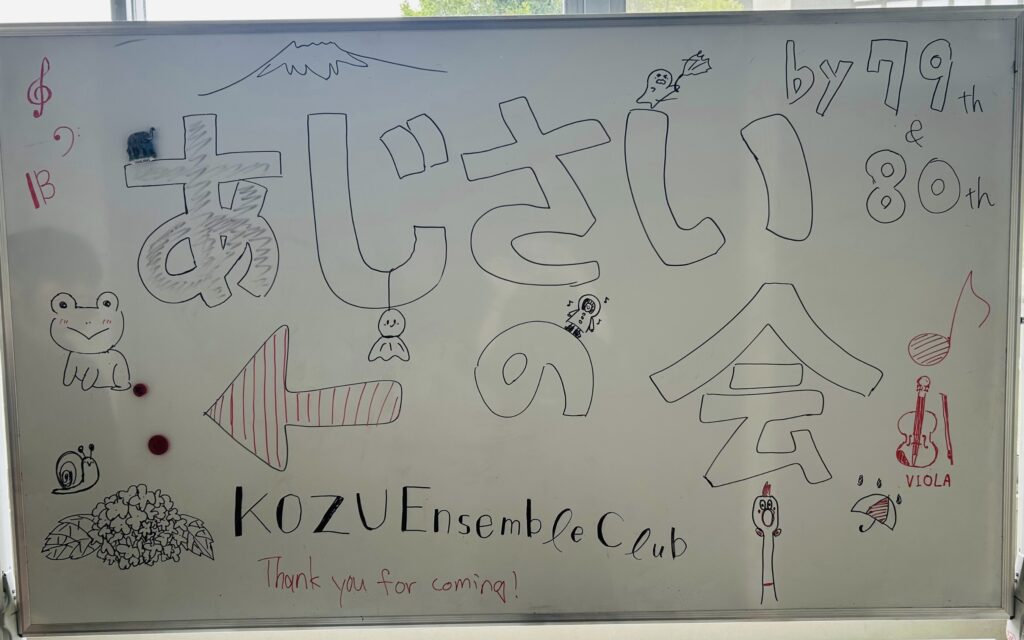 あじさい
の会
by 79th
&
80th
KOZU Ensemble Club
Thank you for coming!
VIOLA